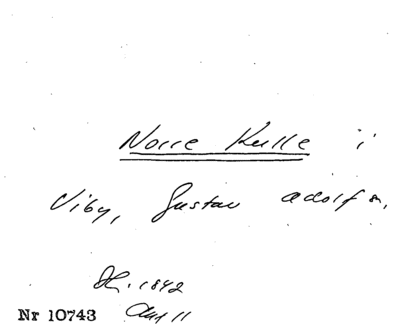 Norre Kulle i
Viby, Gustav Adolf s.
1842
Nr 10743